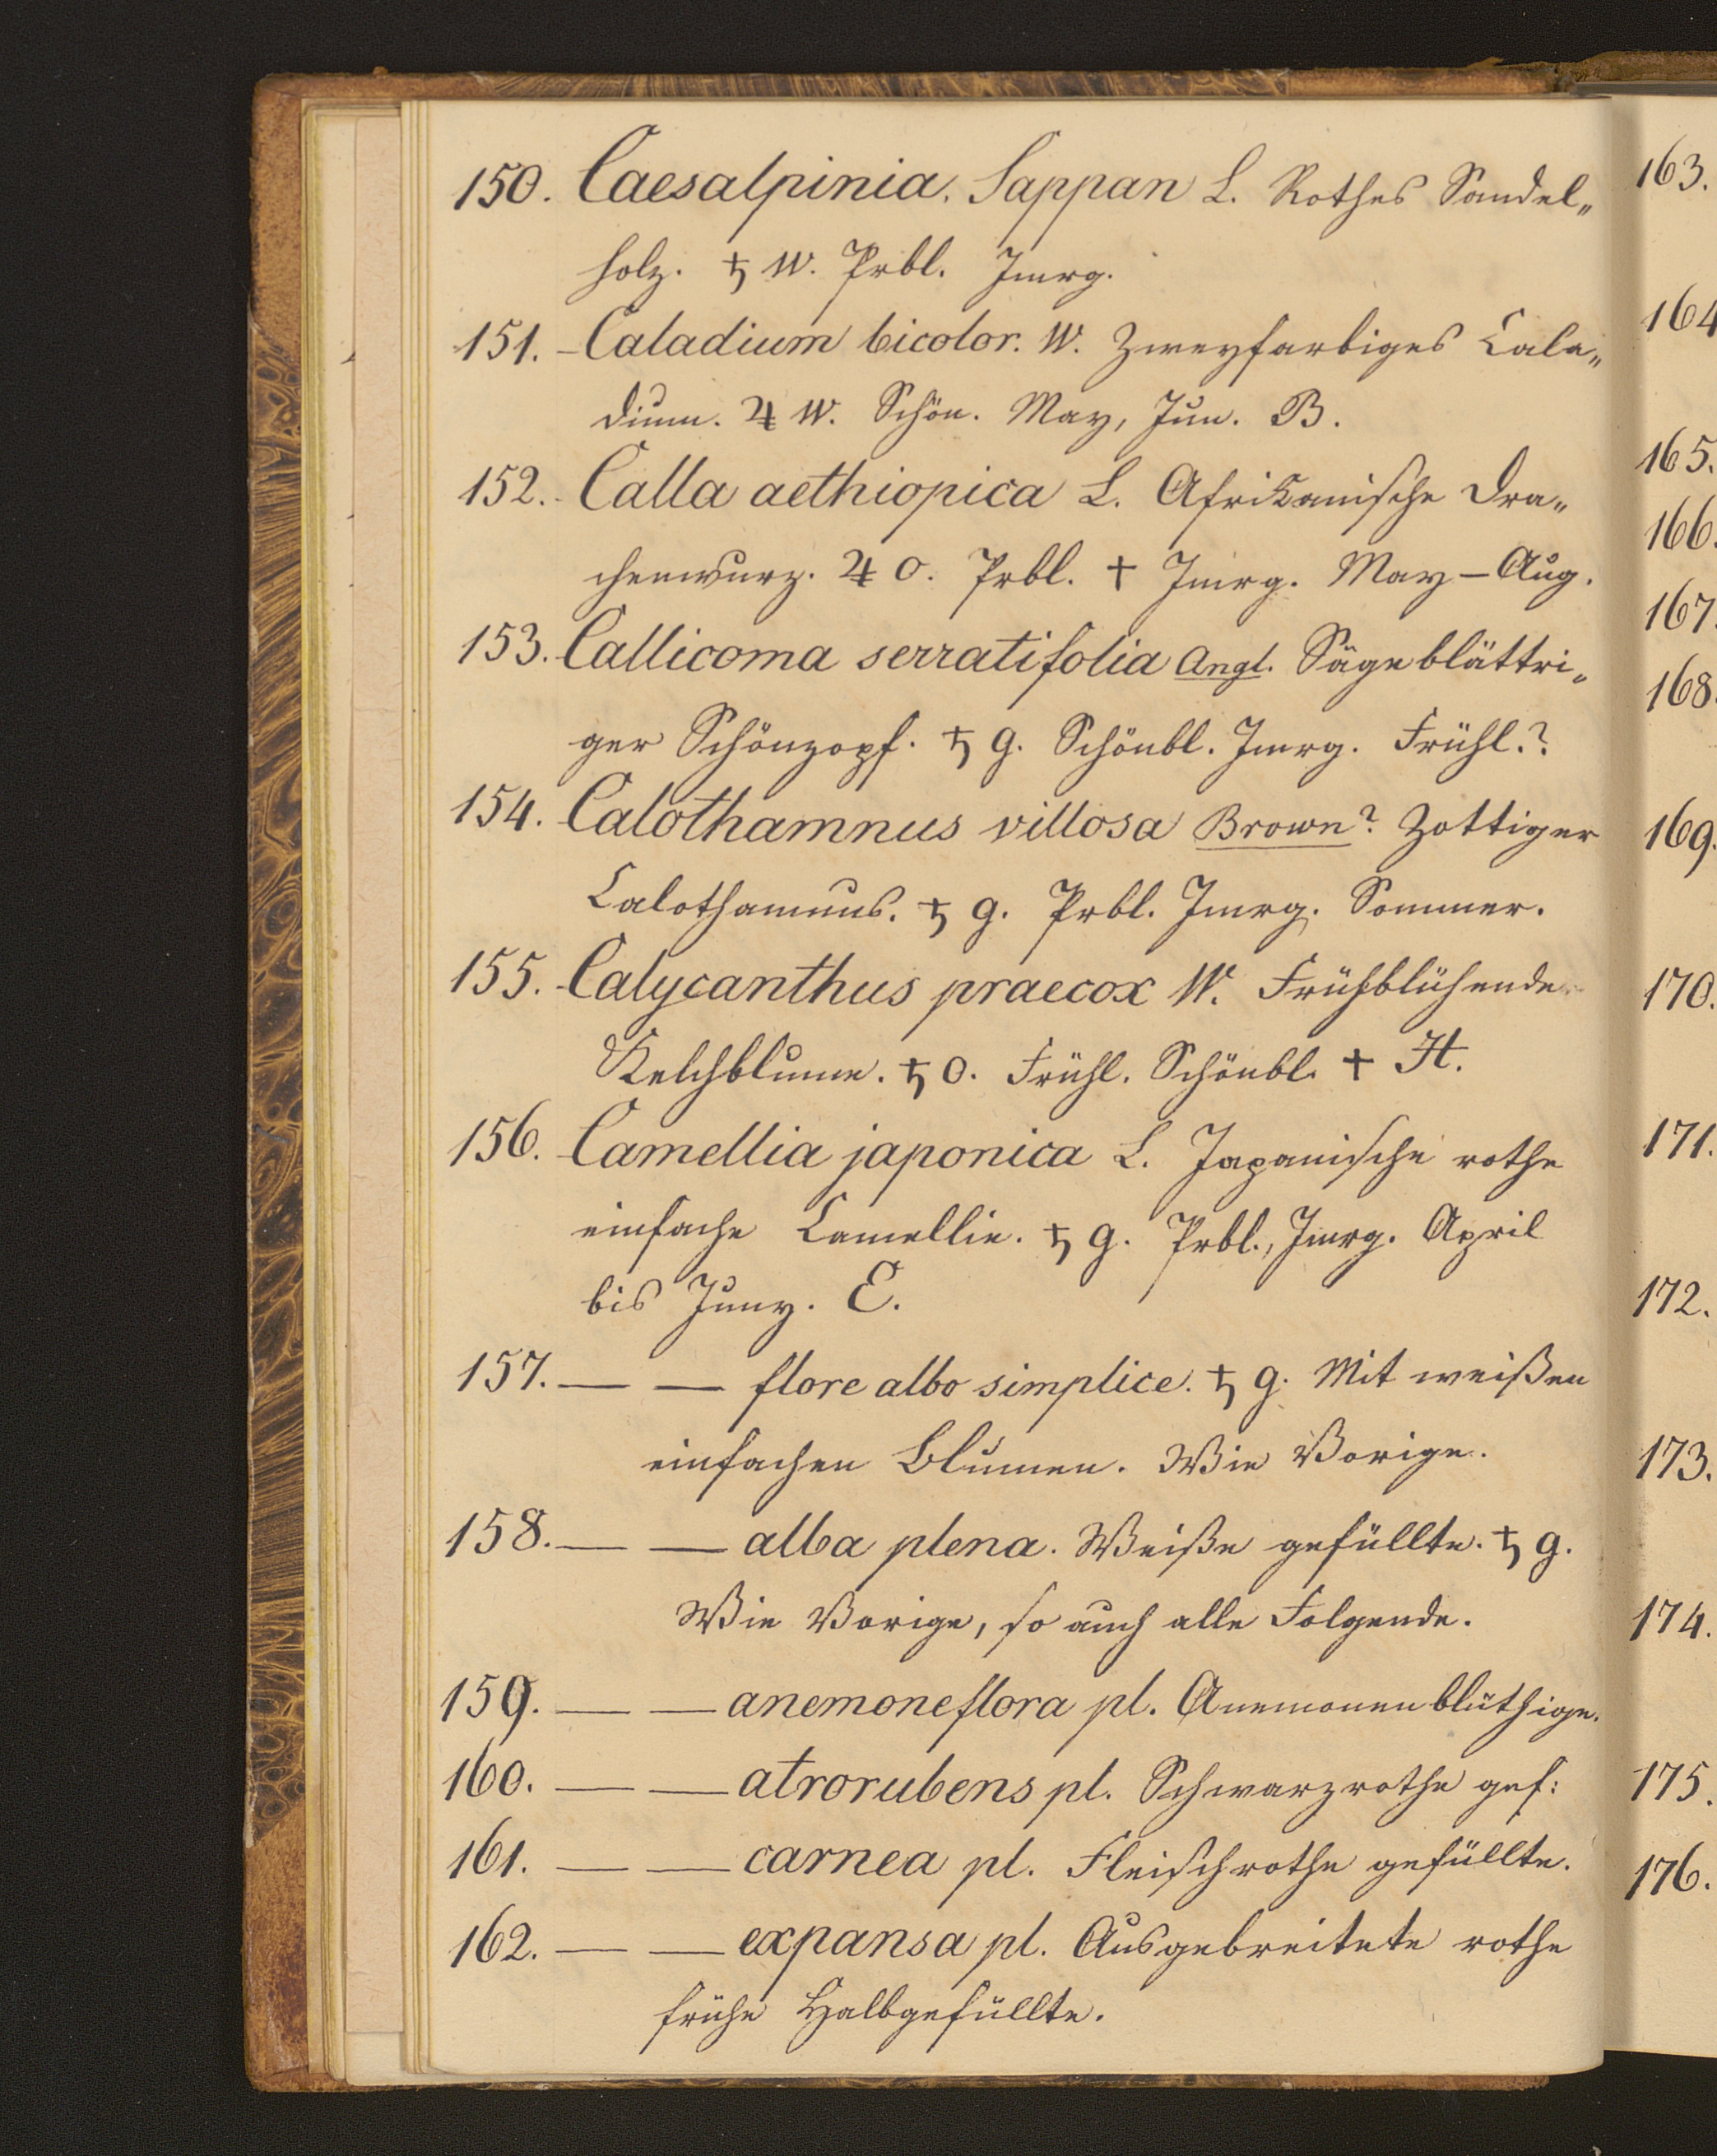 150. Caesalpinia. Sappan L. Rothes Sandel„
holz. ♄ W. Prbl. Jmrg.
151. Caladium bicolor. W. Zweyfarbiges Cala„
dium. ♃ W. Schön. May, Jun. B.
152. Calla aethiopica L. Afrikanische Dra„
chenwurz. ♃ O. Prbl. † Jmrg. May — Aug.
153. Callicoma serratifolia Angl. Sägeblättri„
ger Schönzopf. ♄ g. Schönbl. Jmrg. Frühl.?
154. Calothamnus villosa Brown? Zottiger
Calothamnus. ♄ g. Prbl. Jmrg. Sommer.
155. Calycanthus praecox W. Frühblühende
Kelchblume. ♄ O. Frühl. Schönbl. † H.
156. Camellia japonica L. Japanische rothe
einfache Camellie. ♄ g. Prbl., Jmrg. April
bis Juny. E.
157. — — flore albo simplice. ♄ g. Mit weißen
einfachen Blumen. Wie Vorige.
158. — — alba plena. Weiße gefüllte. ♄ g.
Wie Vorige, so auch alle Folgende.
159. — — anemoneflora pl. Anemonenblüthige.
160. — — atrorubens pl. Schwarzrothe gef:
161. — — carnea pl. Fleischrothe gefüllte.
162. — — expansa pl. Ausgebreitete rothe
frühe Halbgefüllte.
163.
164
165.
166.
167.
168.
169.
170.
171.
172.
173.
174.
175.
176.